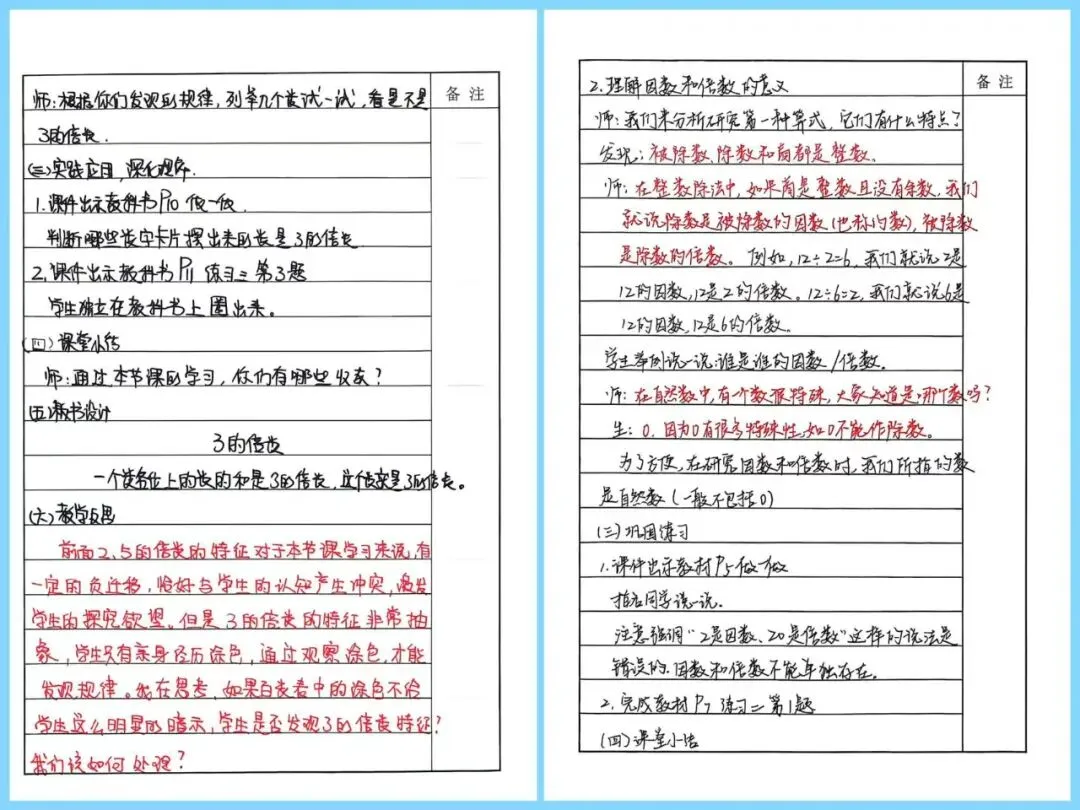 备注
师:根据你们发现的规律,列举几个数试一试,看是不是
3的倍数.
(三)实践应用,深化理解.
1.课件出示教科书P10做一做.
判断哪些数字卡片摆出来的数是3的倍数
2.课件出示教科书P11练习三第3题
学生独立在教科书上圈出来。
(四)课堂小结
师:通过本节课的学习,你们有哪些收获?
(五)板书设计
3的倍数
一个数各位上的数的和是3的倍数,这个数就是3的倍数。
(六)教学反思
前面2、5的倍数的特征对于本节课学习来说,有
一定的负迁移,恰好与学生的认知产生冲突,激发
学生的探究欲望。但是3的倍数的特征非常抽
象,学生只有亲身经历涂色,通过观察涂色,才能
发现规律。我在思考,如果百数表中的涂色不给
学生这么明显的暗示,学生是否发现3的倍数特征?
我们该如何处理?
备注
2.理解因数和倍数的意义
师:我们来分析研究第一种算式,它们有什么特点?
发现:被除数、除数和商都是整数。
师:在整数除法中,如果商是整数且没有余数,我们
就说除数是被除数的因数(也称约数),被除数
是除数的倍数。例如,12÷2=6,我们就说2是
12的因数,12是2的倍数。12÷6=2,我们就说6是
12的因数,12是6的倍数。
学生举例说一说:谁是谁的因数/倍数。
师:在自然数中,有个数很特殊,大家知道是哪个数吗?
生:0.因为0有很多特殊性,如0不能作除数。
为了方便,在研究因数和倍数时,我们所指的数
是自然数(一般不包括0)
(三)巩固练习
1.课件出示教材P5做一做
指名同学说一说.
注意强调“2是因数、20是倍数”这样的说法是
错误的.因数和倍数不能单独存在。
2.完成教材P7练习二第1题
(四)课堂小结